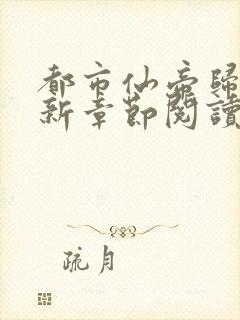 都市仙帝歸
新章節閱讀
疏月